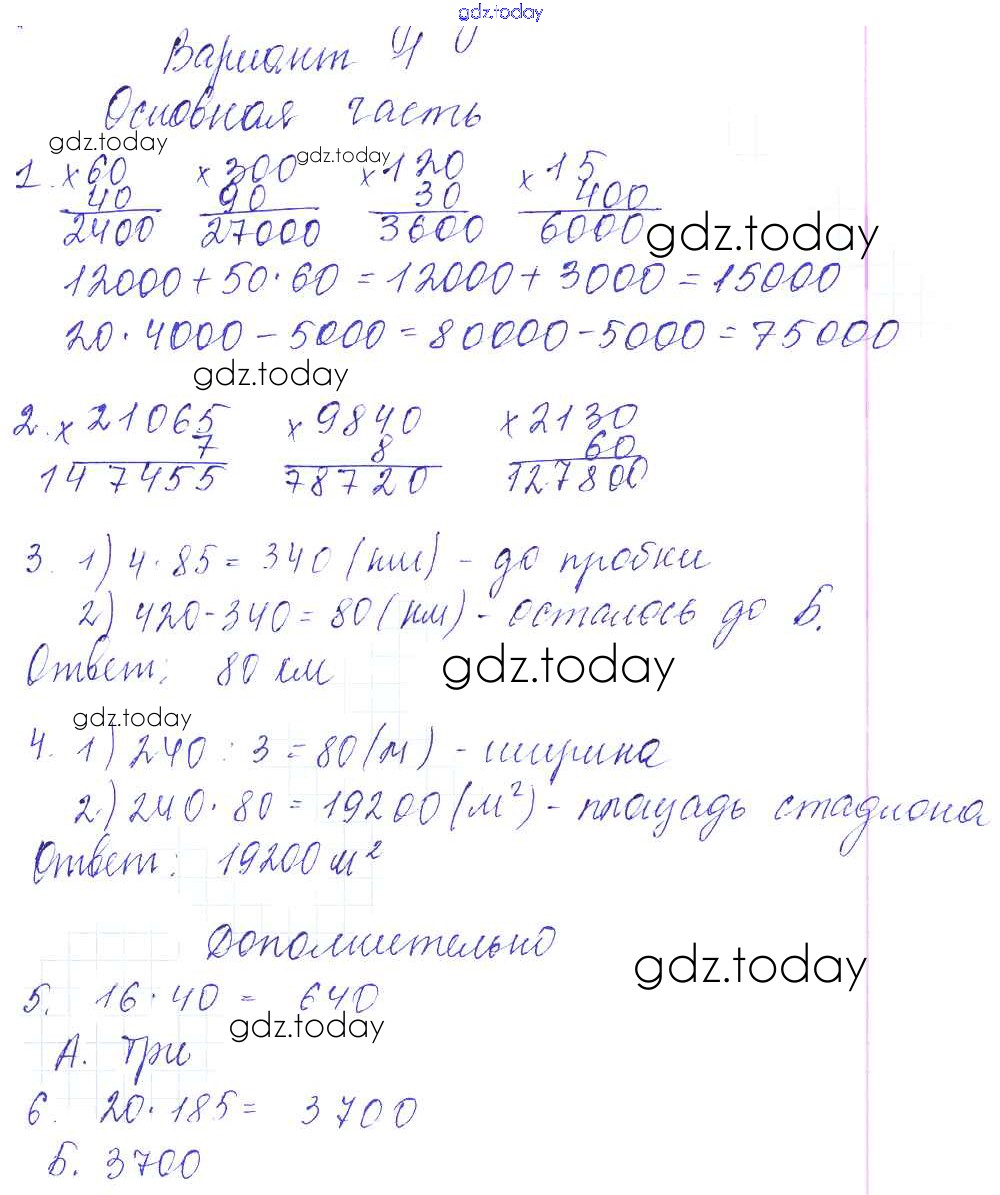 gdz.today
Вариант
Основная часть
gdz.today gdz.today
1. ×60 ×300 ×120 ×15
40 90 30 400
2400 27000 3600 6000
gdz.today
12000 + 50 · 60 = 12000 + 3000 = 15000
20 · 4000 – 5000 = 80000 – 5000 = 75000
gdz.today
2. ×21065 ×9840 ×2130
7 8 60
147455 78720 127800
3. 1) 4 · 85 = 340 (км) – до пробки
2) 420 – 340 = 80 (км) – осталось до Б.
Ответ: 80 км
gdz.today
gdz.today
4. 1) 240 : 3 = 80 (м) – ширина
2) 240 · 80 = 19200 (м²) – площадь стадиона
Ответ: 19200 м²
Дополнительно
gdz.today
5. 16 · 40 = 640
gdz.today
А. Три
6. 20 · 185 = 3700
Б. 3700